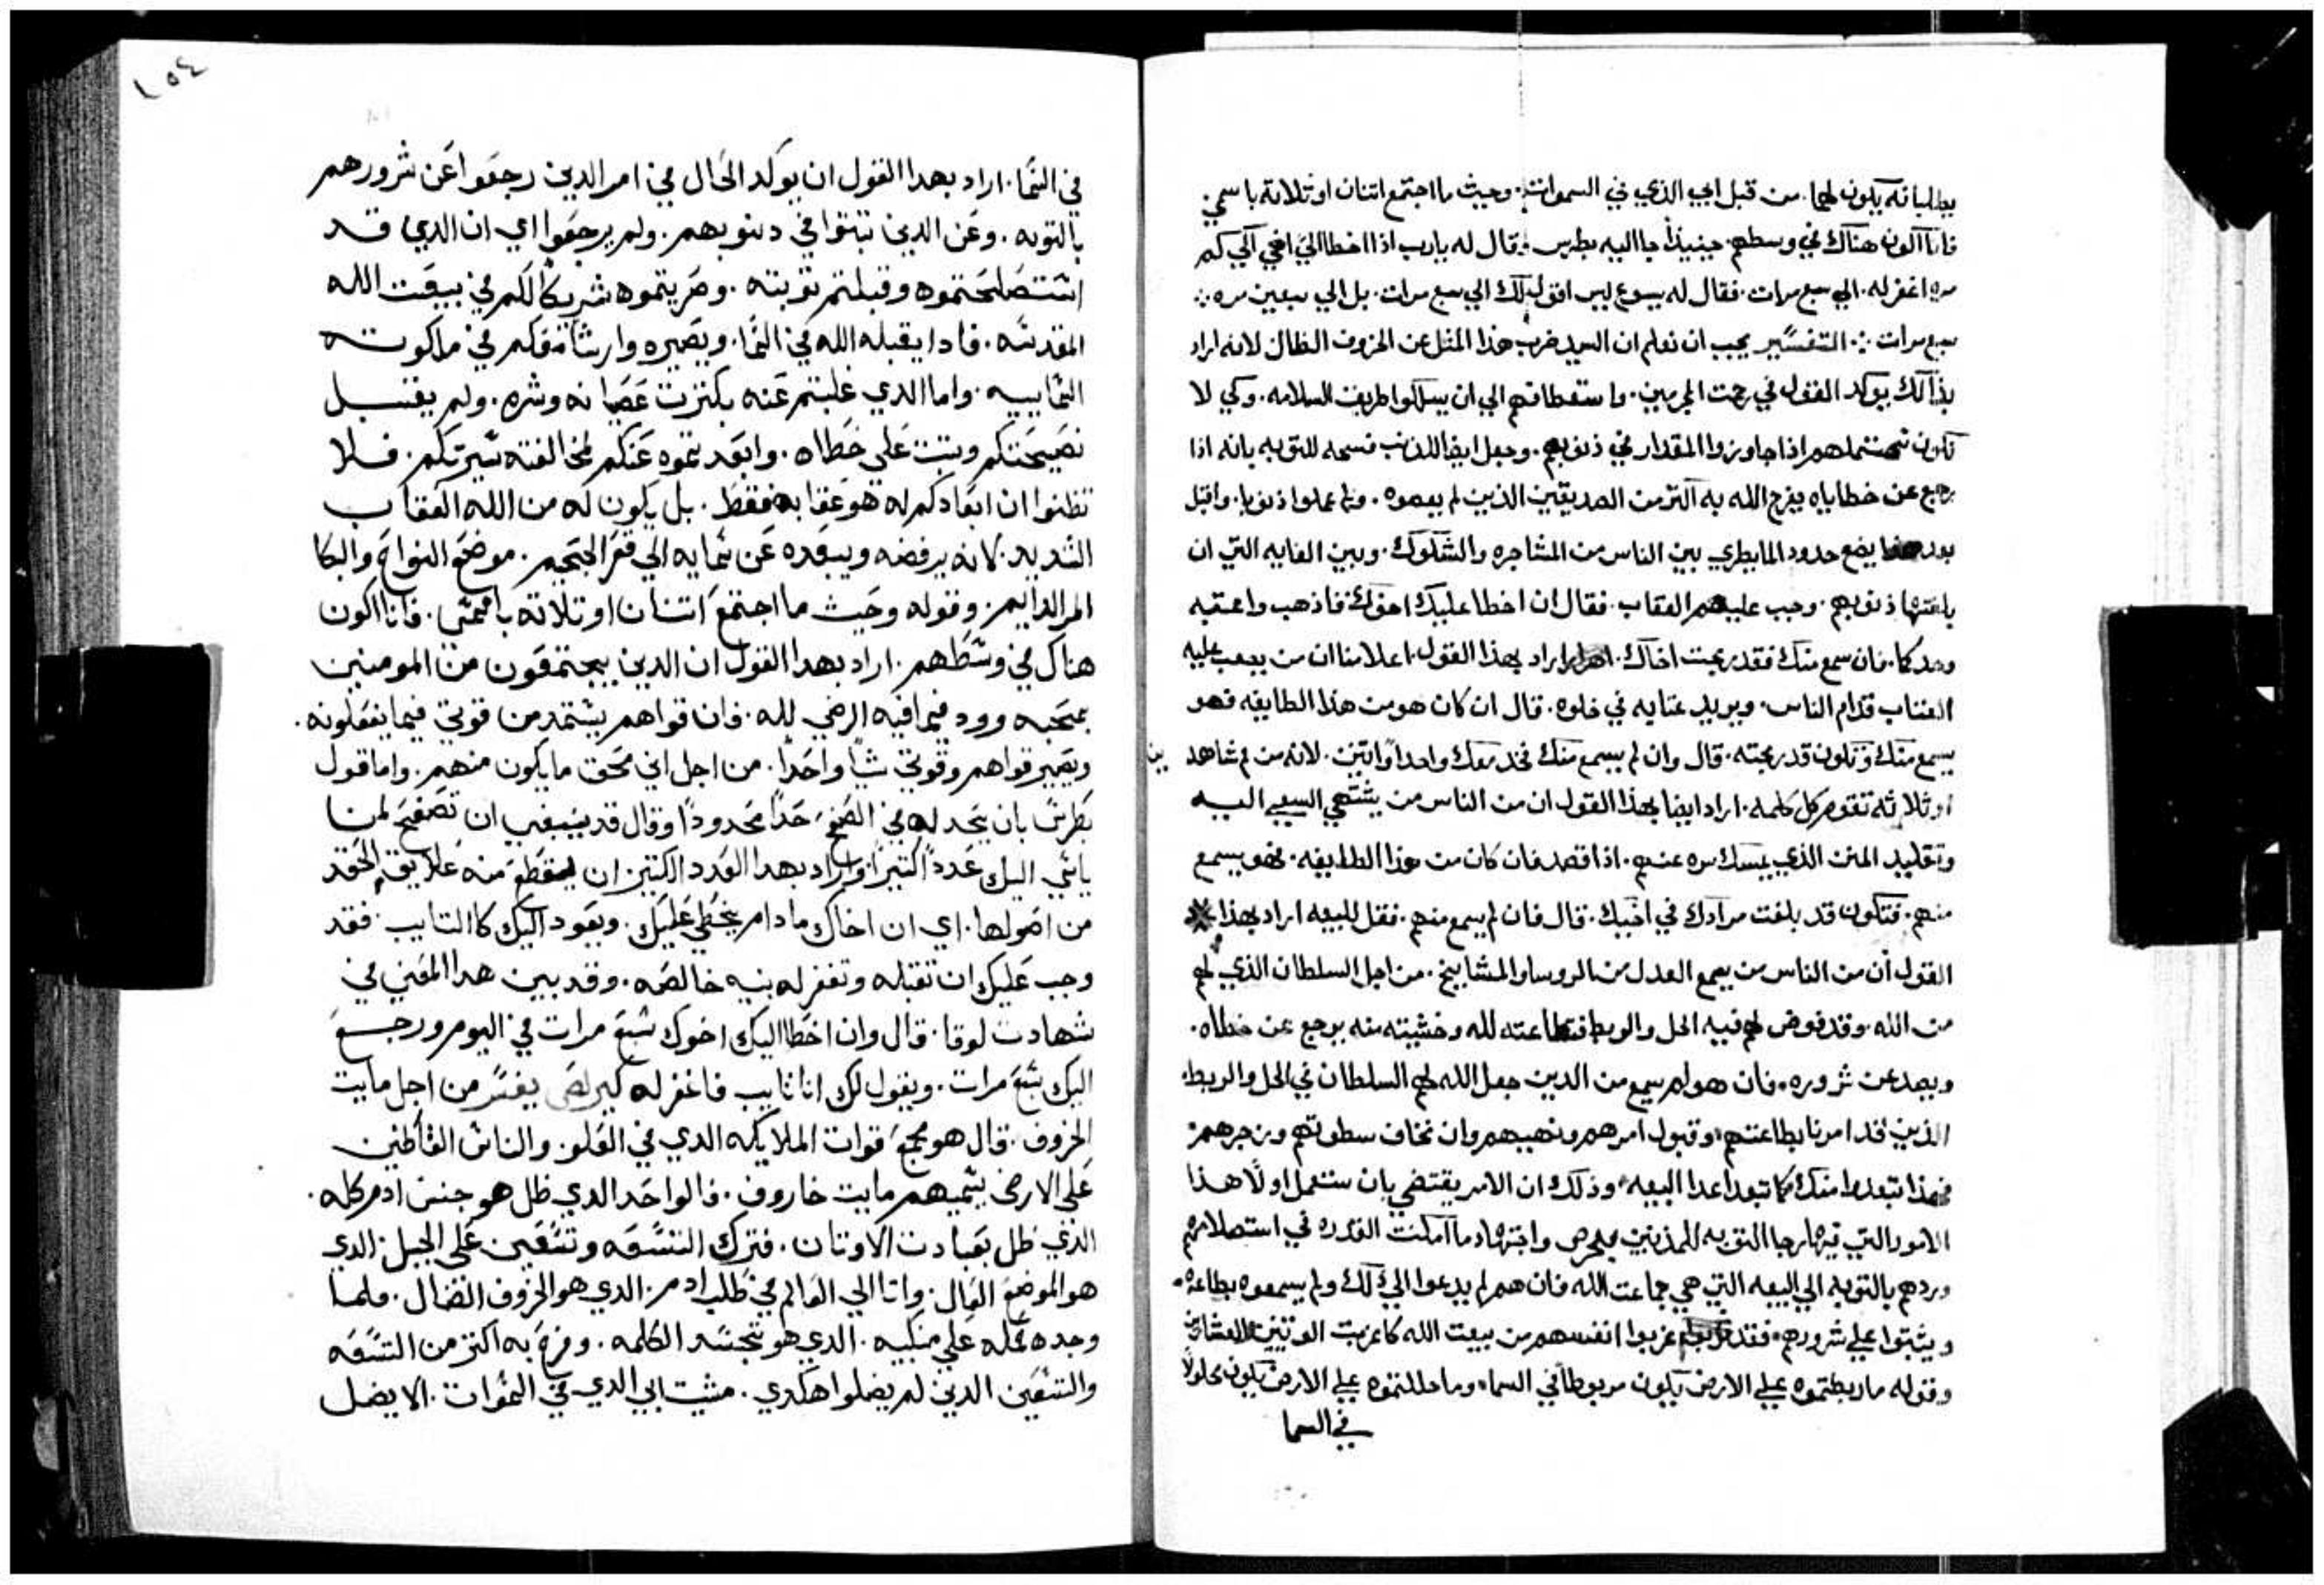 يطلبانه يكون لهما. من قبل ابي الذي في السموات. وحيث ما اجتمع اتنان او تلاتة باسمي
فانا اكون هناك في وسطهم. حينيذ جا اليه بطرس. قال له يارب اذا اخطا الي اخي الي كم
مره اغفر له. الي سبع مرات. فقال له يسوع ليس اقول لك الي سبع مرات. بل الي سبعين مره
سبع مرات. التفسير يجب ان نعلم ان السيد ضرب هذا المثل عن الخروف الظال لانه اراد
بذالك يوكد القول في رحمت المجرمين. واستعطافهم الي ان يسلكوا طريق السلامه. وكي لا
نكون اذا جاوزوا المقدار في ذنوبهم. وجعل ايضا للمذنب فسحه للتوبه بانه اذا
رجع عن خطاياه يفرح الله به اكثر من الصديقين الذين لم يعصوه. ولم عملوا ذنوبا. واقبل
بعد هذا يضع حدود لما يطري بين الناس من المشاجره والشكوك. وبين الغايه التي ان
بلغتها ذنوبهم. وجب عليهم العقاب. فقال ان اخطا عليك اخوك فاذهب واعتبه
وحدكما. فان سمع منك فقد ربحت اخاك. اراد بهذا القول. اعلامنا ان من يصعب عليه
العتاب قدام الناس. ويريد عتابه في خلوه. قال ان كان هو من هذا الطايفه فهو
يسمع منك وتكون قد ربحته. قال وان لم يسمع منك فخد معك واحداً او اتنين. لانه من فم شاهدين
او ثلاثه تقوم كل كلمه. اراد ايضا بهذا القول ان من الناس من يشتهي السعي اليه
وتقليد المنن الذي يمسك مره عنهم. اذا قصد فان كان من هذا الطايفه. فهو يسمع
منهم. فتكون قد بلغت مرادك في اخيك. قال فان لم يسمع منهم. فقل للبيعه اراد بهذا
القول ان من الناس من يسمع العدل من الروسا والمشايخ. من اجل السلطان الذي لهم
من الله. وقد فوض لهم فيه الحل والربط فبطاعته لله وخشيته منه يرجع عن خطاه.
ويصد عن شروره. فان هو لم يسمع من الدين جعل الله لهم السلطان في الحل والربط.
الذين قد امرنا بطاعتهم. وقبول امرهم ونهيهم وان نخاف سطوتهم وزجرهم
فهذا تبعده منك كما تبعد اعدا البيعه. وذلك ان الامر يقتضي بان ستعمل اولاً هذا
الامور التي فيها رجا التوبه للمذنبين بحرص واجتهاد ما امكنت القدره في استصلاحهم
وردهم بالتوبه الي البيعه التي هي جماعت الله فان هم لم يدعوا الي ذلك ولم يسمعوه بطاعه
ويثبتوا علي شرورهم. فقد غربوا انفسهم من بيعت الله كما غربت الوتنيين والعشارين
وقوله ما ربطتموه علي الارض يكون مربوطا في السما. وما حللتموه علي الارض يكون محلولاً
في السما
١٥٤
في السما. اراد بهدا القول ان يوكد الحال في امر الدين رجعوا عن شرورهم
بالتوبه. وعن الدين تبتوا في دنوبهم. ولم يرجعوا اي ان الدي قد
استصلحتموه وقبلتم توبته. وصريتموه شريكاً لكم في بيعت الله
المقدسه. فادا يقبله الله في السما. ويصيره وارثا معكم في ملكوته
السماييه. واما الدي غلبتم عنه بكترت عصيانه وشره. ولم يقبل
نصيحتكم ويتبت علي خطاه. وابعد تموه عنكم لمخالفته سيرتكم. فلا
تظنوا ان ابعادكم له هو عقابه فقط. بل يكون له من الله العقاب
الشديد. لانه يرفضه ويبعده عن سمايه الي قعر الجحيم. موضع النواح والبكا
المر الدايم. وقوله وحيث ما اجتمع اتنان او تلاته باسمي. فانا اكون
هناك في وسطهم. اراد بهدا القول ان الدين يجتمعون من المومنين
بمحبه وود فيما فيه الرضي لله. فان قواهم يستمد من قوتي فيما يفعلونه.
ويصير قواهم وقوتي شياً واحداً. من اجل اني محق ما يكون منهم. واما قول
بطرس بان يحد له في الصفح حداً محدوداً وقال قد ينبغي ان تصفح لمن
ياسي اليك عدداً كتيراً واراد بهدا العدد الكتير ان يقطع منه علايق الحقد
من اصولها. اي ان اخاك ما دام يخطي عليك. ويعود اليك كالتايب. فقد
وجب عليك ان تقبله وتغفر له بنيه خالصه. وقد بين هدا المعني في
شهادت لوقا. قال وان اخطا اليك اخوك سبع مرات في اليوم ورجع
اليك سبع مرات. ويقول لك انا تايب فاغفر له كيرلص يفسر من اجل مايت
الخروف. قال هو مجمع قوات الملايكه الدي في العلو. والناس القاطنين
علي الارض يسميهم مايت خاروف. فالواحد الدي ظل هو جنس ادم كله.
الدي ظل بعبادت الاوتان. فترك التسعه وتسعين علي الجبل. الدي
هو الموضع العال. واتا الي العالم في طلب ادم. الدي هو الخروف الضال. ولما
وجده حمله علي منكبيه. الدي هو تجسد الكلمه. وفرح به اكتر من التسعه
والتسعين الدين لم يضلوا هكدي. مشيت ابي الدي في السموات. الا يضل